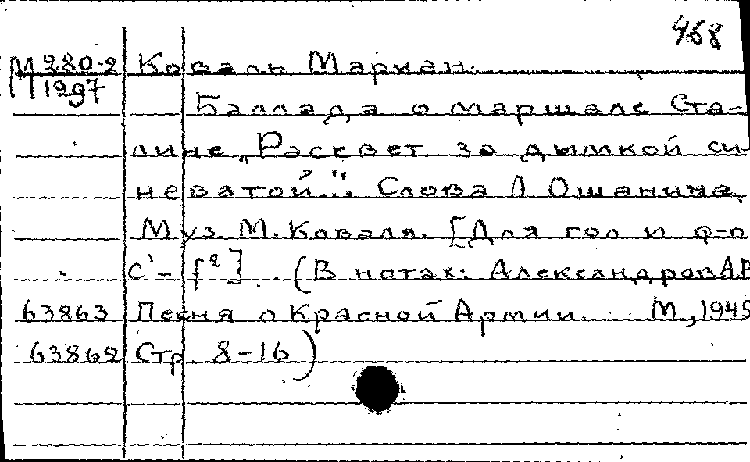 468
М 280-2 Коваль Мариан.
1297
Баллада о маршале Ста-
лине „Рассвет за дымкой си-
неватой...". Слова Л. Ошанина.
Муз. М. Коваля. [Для гол и ф-п
c¹ - f²]. (В нотах: Александров АВ
63863 Песня о Красной Армии. М, 1945
63862 Стр. 8-16)